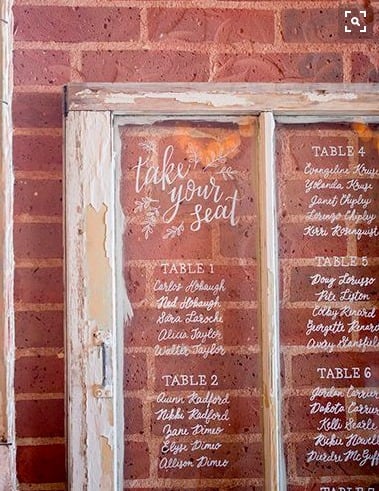 take
your
seat
TABLE 1
Carlos Hobaugh
Ned Hobaugh
Sara Laroche
Alicia Taylor
Walter Taylor
TABLE 2
Quinn Radford
Nikki Radford
Zane Dimeo
Elyse Dimeo
Allison Dimeo
TABLE 4
Evangeline Kruse
Yolanda Kruse
Janet Chipley
Lorenzo Chipley
Kerri Rosenquist
TABLE 5
Doug Lorusso
Pete Liston
Colby Renard
Georgette Renard
Avery Stansfield
TABLE 6
Jordan Carrier
Dakota Carrier
Kelli Searle
Richie
Deirdre McGuff